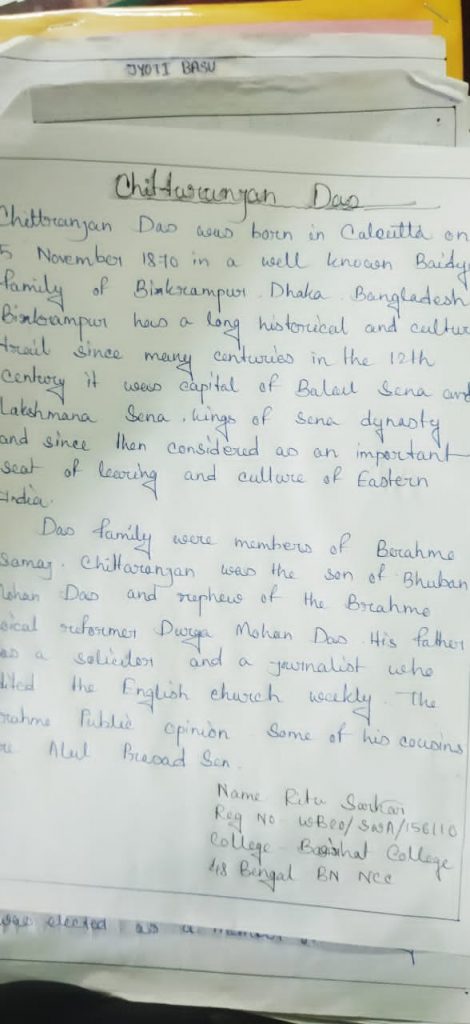 JYOTI BASU
Chittaranjan Das
Chittranjan Das was born in Calcutta on
5 November 1870 in a well known Baidy
family of Bikrampur Dhaka Bangladesh
Bikrampur has a long historical and cultur
trail since many centuries in the 12th
century it was capital of Balal Sena and
Lakshmana Sena, kings of sena dynasty
and since then considered as an important
seat of learing and culture of Eastern
India.
Das family were members of Brahmo
Samaj. Chittaranjan was the son of Bhuban
Mohan Das and nephew of the Brahmo
ocial reformer Durga Mohan Das. His father
as a solicitor and a journalist who
dited the English church weekly. The
rahmo Public Opinion. Some of his cousins
re Atul Prasad Sen.
Name Ritu Sarkar
Reg No WB20/SWA/156110
College - Basirhat College
48 Bengal BN NCC
was elected as a member